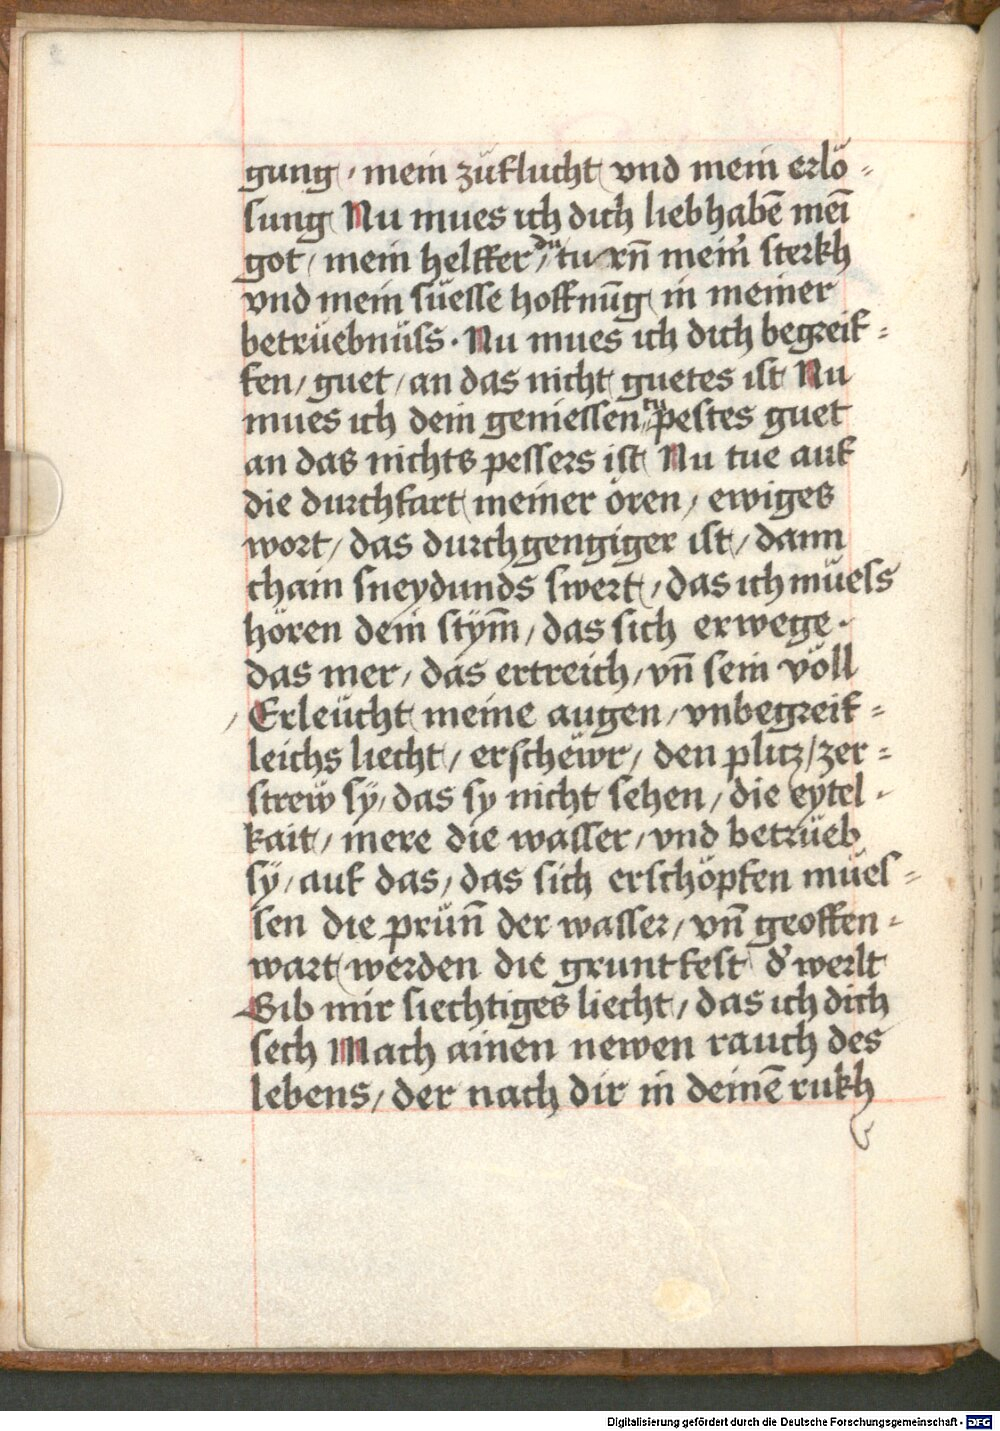 gung / mein zúflucht vnd mein erlö-
sung Nu mues ich dich liebhabē meī
got / mein helffer / dú turn̄ mein̉ sterkh
vnd mein súesse hoffnūg in meiner
betrúebnúss · Nu mues ich dich begreif-
fen / guet / an das nicht guetes ist Nu
mues ich dein geniessen / tu pestes guet
an das nichts pessers ist Nu tue auf
die durchfart meiner ören / ewiges
wort / das durchgengiger ist / dann
chain sneydunds swert / das ich múess
hören dein stÿm̄ / das sich erwege ·
das mer / das ertreich / vn̄ sein völl
Erleúcht meine augen / vnbegreif-
leichs liecht / erschëwr / den plitz / zer-
strew sÿ / das sy nicht sehen / die eytel-
kait / mere die wasser / vnd betrúeb
sÿ / auf das / das sich erschöpfen múes-
sen die prún̄ der wasser / vn̄ geoffen-
wart werden die gruntfest d̉ werlt
Gib mir siechtiges liecht / das ich dich
sech Mach ainen newen rauch des
lebens / der nach dir in deinē rukh
Digitalisierung gefördert durch die Deutsche Forschungsgemeinschaft - DFG